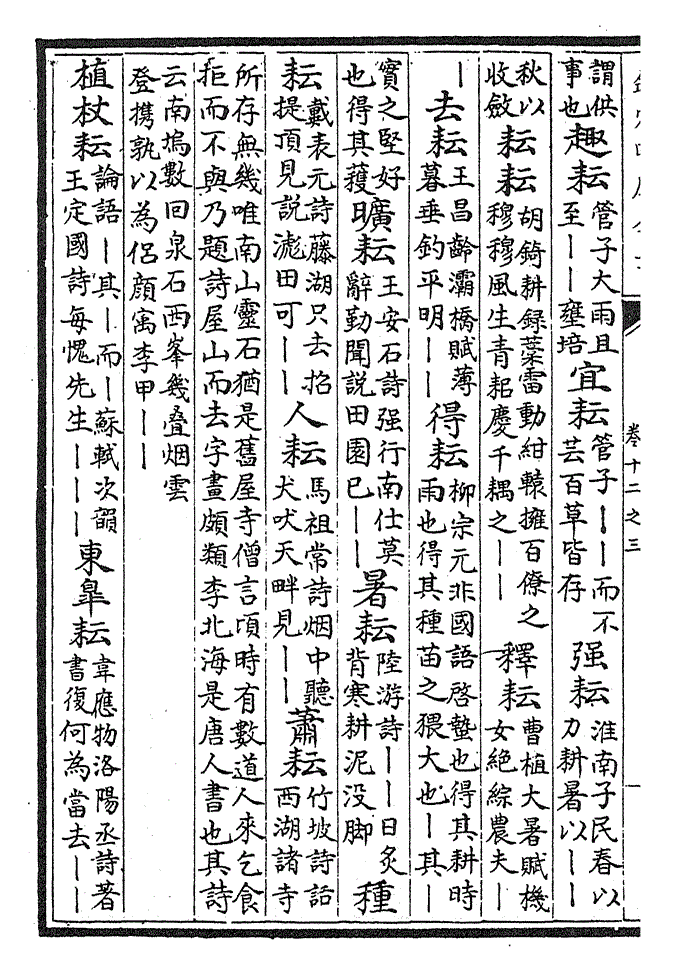 卷十二之三
謂供事也趣耘管子大雨且至｜｜壅培宜耘管子｜｜而不芸百草皆存强耘淮南子民春以力耕暑以｜｜
秋以收斂耘耘胡錡耕録藁雷動紺轅擁百僚之穆穆風生青耜慶千耦之｜｜釋耘曹植大暑賦機女絶綜農夫｜
｜去耘王昌齡灞橋賦薄暮垂釣平明｜｜得耘柳宗元非國語啓蟄也得其耕時雨也得其種苗之猥大也｜其｜
實之堅好也得其穫曠耘王安石詩强行南仕莫辭勤聞説田園已｜｜暑耘陸游詩｜｜日炙背寒耕泥没脚種
耘戴表元詩藤湖只去招提頂見説滮田可｜｜人耘馬祖常詩烟中聽犬吠天畔見｜｜蕭耘竹坡詩話西湖諸寺
所存無幾唯南山靈石猶是舊屋寺僧言頃時有數道人來乞食拒而不與乃題詩屋山而去字畫頗類李北海是唐人書也其詩
云南塢數回泉石西峯幾叠烟雲登攜孰以為侣顔寓李甲｜｜
植杖耘論語｜其｜而｜蘇軾次韻王定國詩每愧先生｜｜｜東臯耘韋應物洛陽丞詩著書復何為當去｜｜